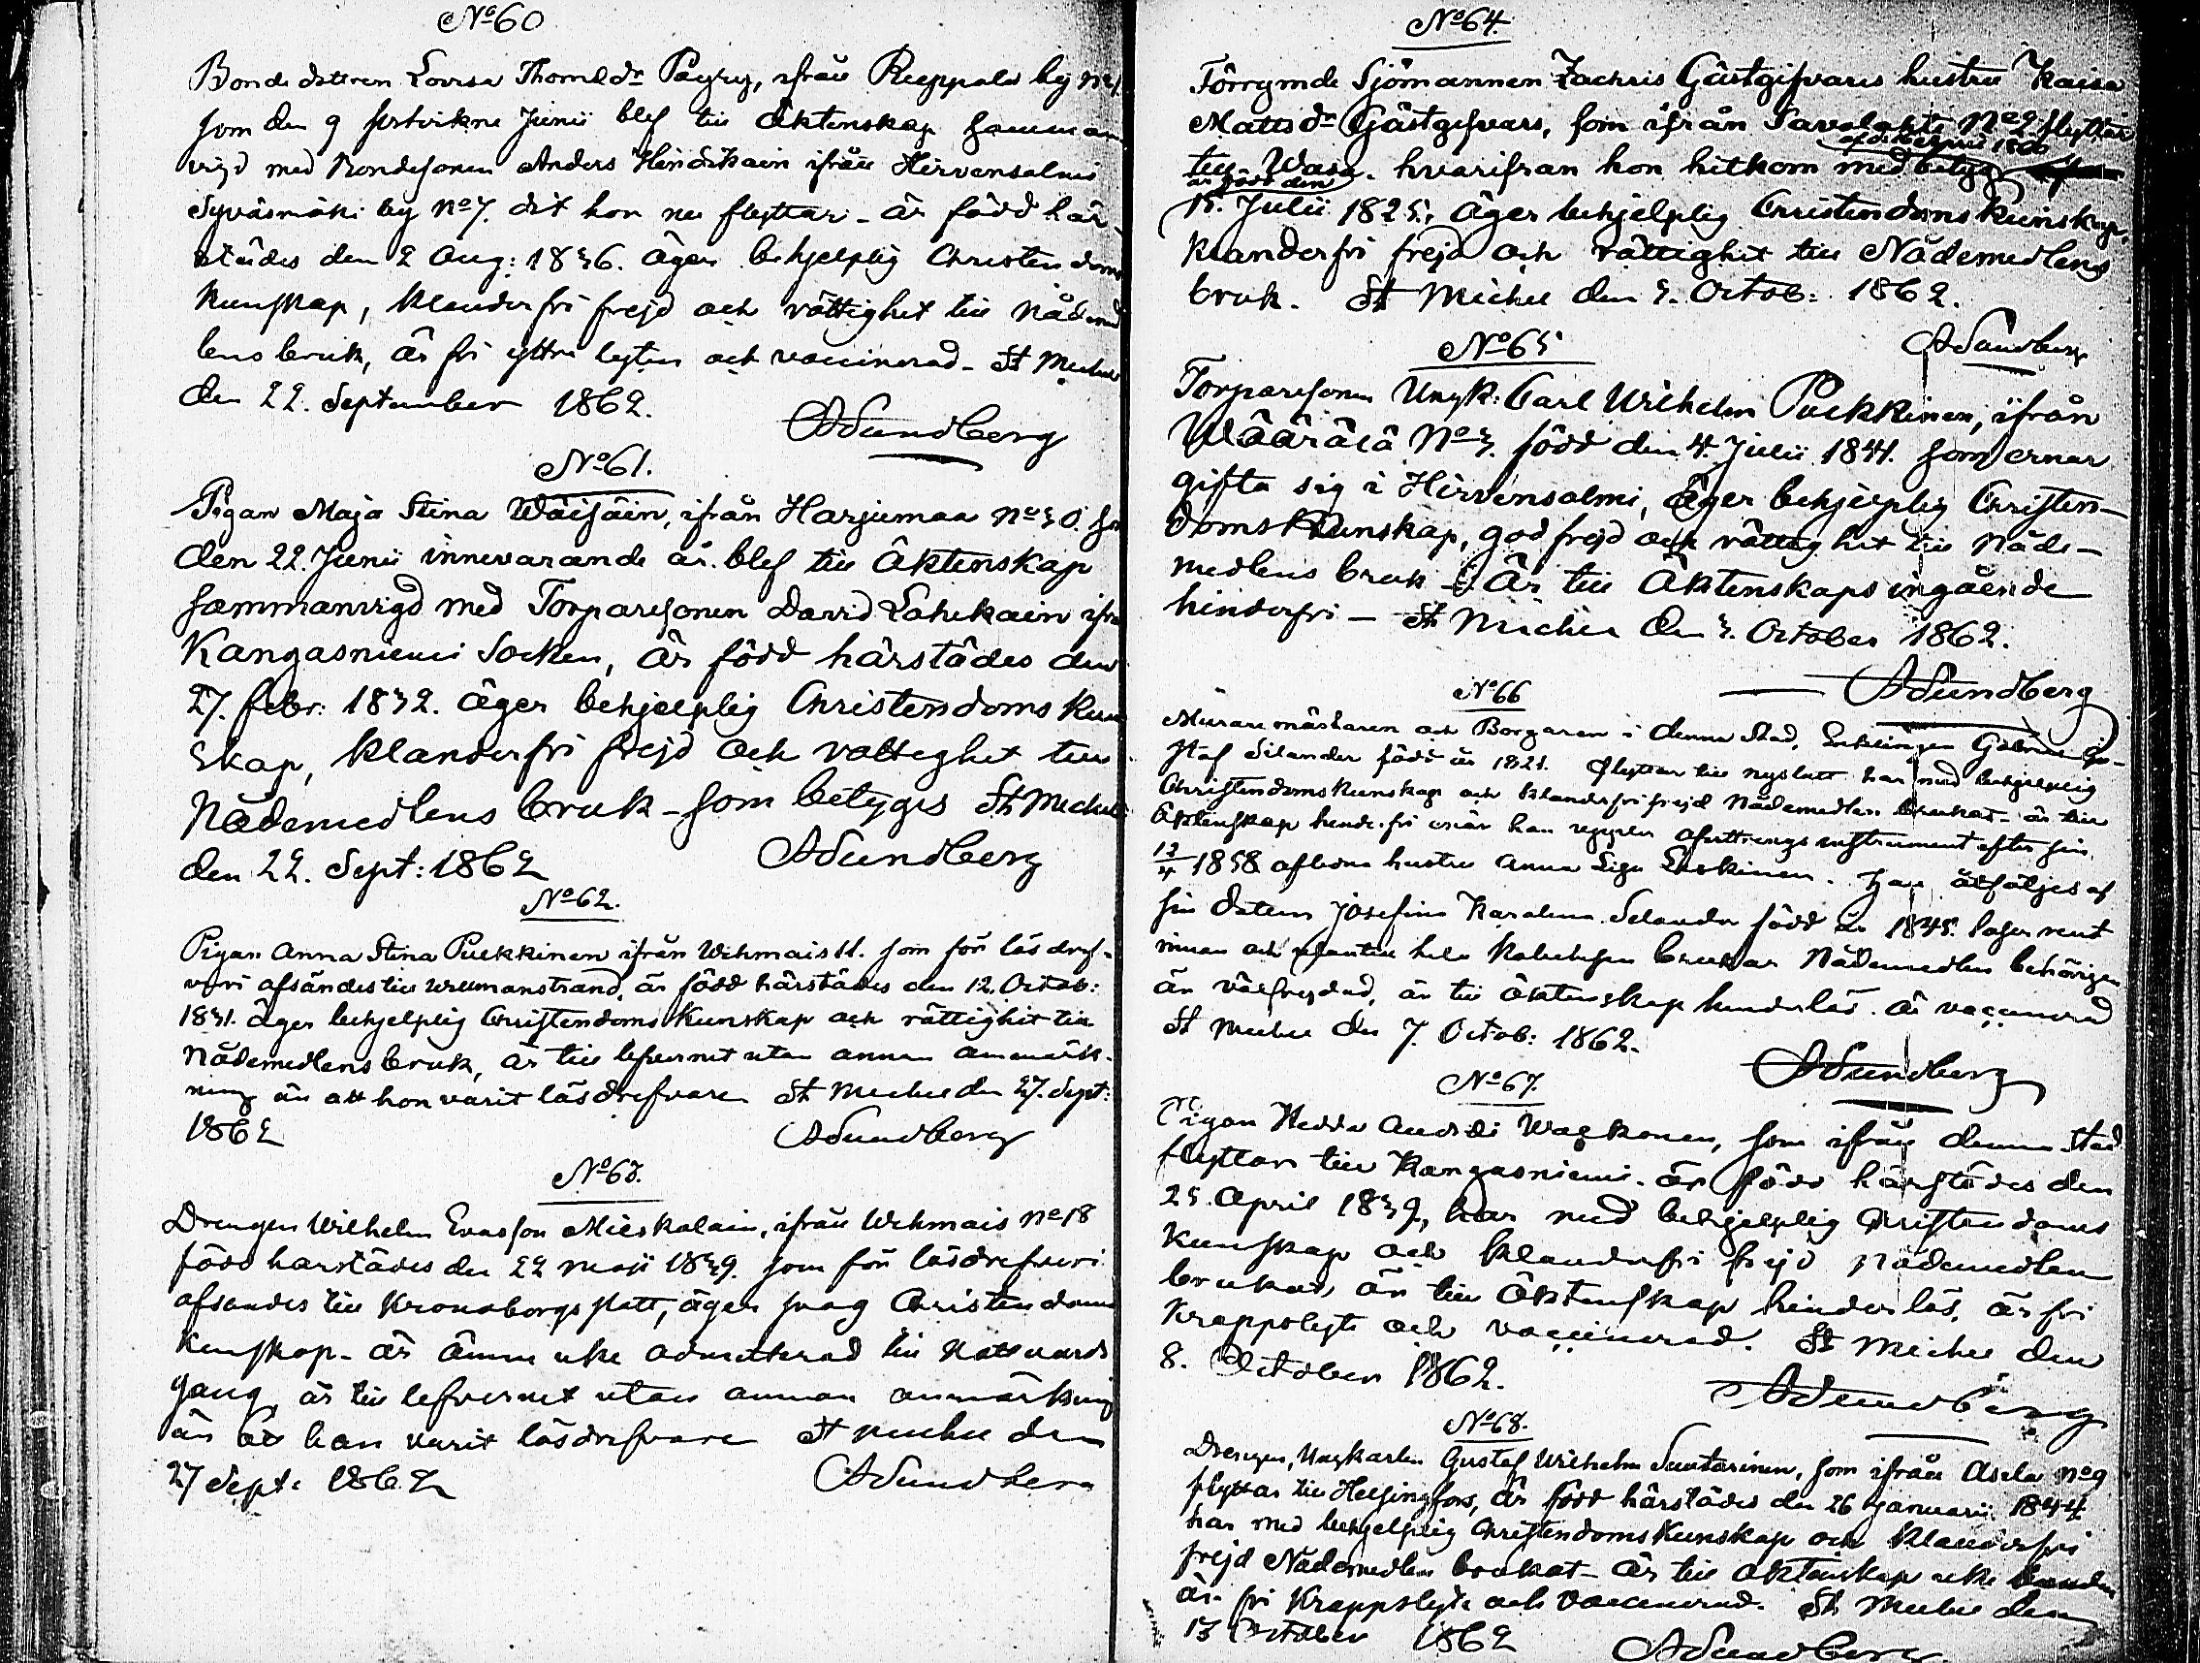 No 60
Bonde dottren Lovisa Thomæ dr Pöyry, ifrån by No
som den 9 sistvikne Junii blef till Äktenskap samman
vigd med Bondesonen Anders Hindrikain ifrån Hirvensalmi
Syväsmäki by No 7. dit hon nu flyttar - är född här
städes den 2 Aug: 1836. äger behjelplig Christendoms
kunskap, klanderfri frejd och rättighet till Nådemed
lens bruk, är fri yttre lyten och vaccinerad - St Michel
den 22. September 1862.
ASundberg
No 61.
Pigan Maja Stina Wäisäin, ifrån Harjumaa No 30. som
den 22. Junii innevarande år blef till Äktenskap
sammanvigd med Torparesonen David Lahikain ifrån
Kangasniemi Socken, är född härstädes den
27. febr: 1832. äger behjelplig Christendoms kun
skap, klanderfri frejd och rättighet till
Nådemedlens bruk - som betyges St Michel
den 22. Sept: 1862
ASundberg
No 62.
Pigan Anna Stina Pukkinen ifrån Wehmais 11. som för lösdref-
veri afsändes till Willmanstrand, är född härstädes den 12. Octob:
1831. äger behjelplig Christendoms kunskap och rättighet till
Nådemedlens bruk, är till lefvernet utan annan anmärk-
ning än att hon varit lösdrefvare St Michel den 27. Sept:
1862
ASundberg
No 63.
Drengen Wilhelm Evasson Mieskalain, ifrån Wehmais No 18
född härstädes den 22 Maji 1839. som för lösdrefveri
afsändes till Kronoborgs slott, äger svag Christendoms
kunskap - är ännu icke admitterad till Nattvards
gång, är till lefvernet utan annan anmärkning
än att han varit lösdrefvare St Michel den
27 Sept. 1862
ASundberg
No 64.
Förrymde Sjömannen Zachris Gästgifvares hustru Kaisa
Matts dr Gästgifvars, som ifrån Savolaks No 2 flyttar
till Wasa - hvarifrån hon hitkom med betyg
är född den
15. Julii 1825, äger behjelplig Christendoms kunskap,
klanderfri frejd och rättighet till Nådemedlens
bruk. St Michel den 3. Octob: 1862.
ASundberg
No 65
Torparesonen Ungk: Carl Wilhelm Pukkinen, ifrån
Wäärälä No 3. född den 4. Julii 1841. som ernar
gifta sig i Hirvensalmi, äger behjelplig Christen-
domskunskap, god frejd och rättighet till Nåde-
medlens bruk - Är till Äktenskaps ingående
hinderfri - St Michel den 3. October 1862.
ASundberg
No 66
Muraremästaren och Borgaren i denna Stad, Enklingen Gu-
staf Silander född år 1821. flyttar till Nyslott har med behjelplig
Christendomskunskap och klanderfri frejd Nådemedlen brukat - är till
Äktenskap hinderfri enär han afvittrings instrument efter sin
12/4 1858 aflidna hustru Anna Laskinen. Han åtföljes af
sin dotter Josefina Karolina Selander född år 1845. läser rent
innan och utantill hela brukar Nådemedlen behörigen
än välfrejdad, är till Äktenskap hinderlös. är vaccinerad
St Michel den 7. Octob: 1862.
ASundberg
No 67.
Pigan Hedda Wagkonen, som ifrån denna Stad
flyttar till Kangasniemi - är född härstädes den
25. April 1839, har med behjelplig Christendoms
kunskap och klanderfri frejd Nådemedlen
brukat, är till Äktenskap hinderlös, är fri
kroppslyte och vaccinerad. St Michel den
8. October 1862.
ASundberg
No 68.
Drengen, Ungkarlen Gustaf Wilhelm Suutarinen, som ifrån Asila No 9
flyttar till Helsingfors, är född härstädes den 26 Januarii 1844
har med behjelplig Christendoms kunskap och klanderfri
frejd Nådemedlen brukat - är till Äktenskap icke bunden
är fri kroppslyte och vaccinerad. St Michel den
13 October 1862
ASundberg.